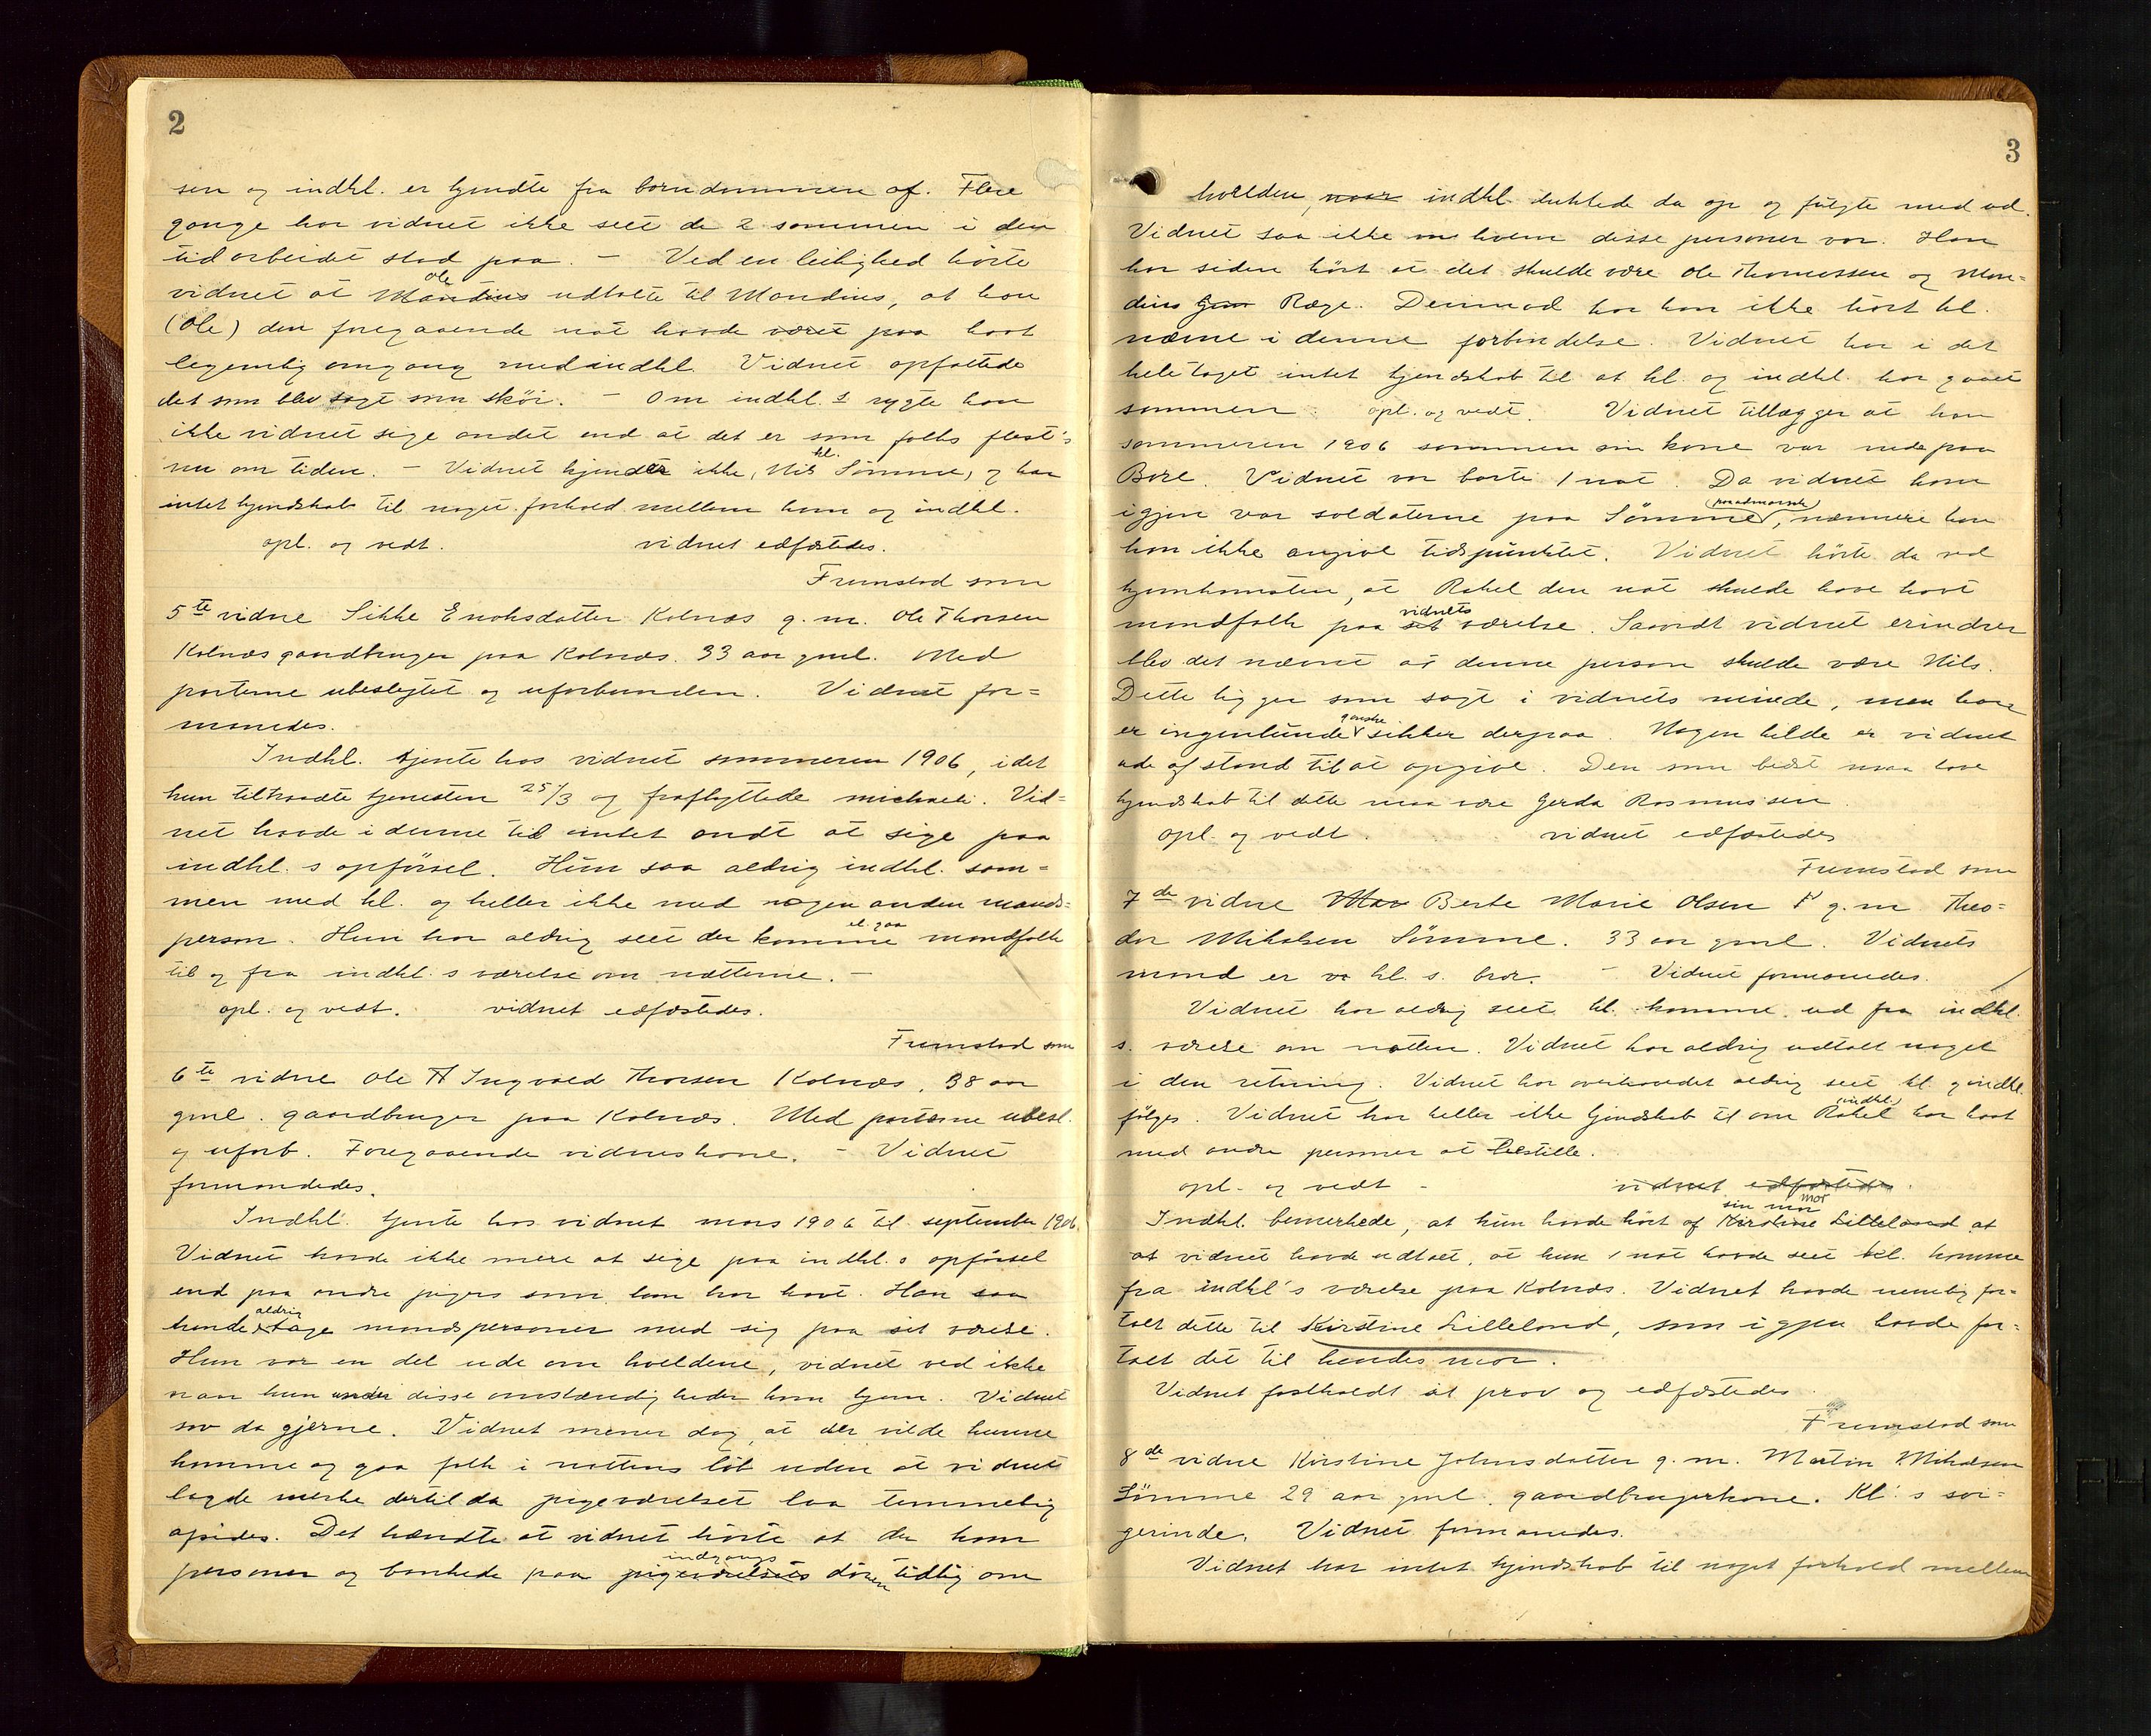 2
sen og indkl. er kjendte fra barndommen af. Flere
gange har vidnet ikke seet de 2 sammen i den
tid arbeidet stod paa. – Ved en leilighed hörte
vidnet at Ole udtalte til Mandius, at han
(Ole) den foregaaende nat havde havt
legemlig omgang med indkl. Vidnet opfattede
det som blev sagt som sköi. – Om indkl.s rygte kan
ikke vidnet sige andet end at det er som folks flest's
nu om tiden. – Vidnet kjender ikke kl. Nils Sömme, og har
intet kjendskab til noget forhold mellem ham og indkl.
opl. og vedt. vidnet edfæstedes.
Fremstod som
5te vidne Sikke Enoksdatter Kolnæs g.m. Ole Thorsen
Kolnæs gaardbruger paa Kolnæs. 33 aar gml. Med
parterne ubeslegtet og uforbunden. Vidnet for=
manedes.
Indkl. tjente hos vidnet sommeren 1906, idet
hun tiltraadte tjenesten 25/3 og fraflyttede michaeli. Vid=
net havde i denne tid intet ondt at sige paa
indkl.s opförsel. Hun saa aldrig indkl. sam=
men med kl. og heller ikke med nogen anden mands=
person. Hun har aldrig seet der komme el. gaa mandfolk
til og fra indkl.s værelse om nætterne. –
opl. og vedt. vidnet edfæstedes.
Fremstod som
6te vidne Ole Ingvald Thorsen Kolnæs, 38 aar
gml. gaardbruger paa Kolnæs. Med parterne ubesl.
og uforb. Foregaaende vidneskone. – Vidnet
formandedes.
Indkl. tjente hos vidnet mars 1906 til september 1906
Vidnet havde ikke mere at sige paa indkl.s opførsel
end paa andre piger som han har havt. Han saa
hende aldrig tage mandspersoner med sig paa sit værelse.
Hun var en del ude om kveldene, vidnet ved ikke
naar hun under disse omstændigheder kom hjem. Vidnet
sov da gjerne. Vidnet mener dog, at der vilde kunne
komme og gaa folk i nattens löb uden at vidnet
lagde merke dertil da pigeværelset laa temmelig
afsides. Det hændte at vidnet hörte at der kom
personer og bankede paa indgangs dören tidlig om
3
kvelden, indkl. lukkede da op og fulgte med ud.
Vidnet saa ikke hvem disse personer var. Han
har siden hört at det skulde være Ole Thomassen og Man=
dius Ræge. Derimod har han ikke hört kl.
nævne i denne forbindelse. Vidnet har i det
hele taget intet kjendskab til at kl. og indkl. har gaaet
sammen. opl. og vedt. Vidnet tillægger at han
sommeren 1906 sammen sin kone var nede paa
Bore. Vidnet var borte 1 nat. Da vidnet kom
igjen var soldaterne paa Sömme (paa admarsch), nærmere kan
han ikke angive tidspunktet. Vidnet hörte da ved
hjemkomsten, at Rakel den nat skulde have havt
mandfolk paa vidnets værelse. Saavidt vidnet erindrer
blev det nævnt at denne person skulde være Nils.
Dette ligger som sagt i vidnets minde, men han
er ingenlunde ganske sikker derpaa. Nogen kilde er vidnet
ude af stand til at opgive. Den som bedst maa have
kjendskab til dette maa være Gerda Rasmussen.
opl. og vedt. vidnet edfæstedes
Fremstod som
7de vidne Berte Marie Olsen g.m. Theo=
dor Mikalsen Sömme. 33 aar gml. Vidnets
mand er kl.s. bror. – Vidnet formanedes.
Vidnet har aldrig seet kl. komme ud fra indkl.
s. værelse om natten. Vidnet har aldrig udtalt noget
i den retning. Vidnet har overhovedet aldrig seet kl. og indkl.
fölges. Vidnet har heller ikke kjendskab til om Rakel (indkl.) har havt
med andre personer at bestille.
opl. og vedt – vidnet edfæstedes.
Indkl. bemerkede, at hun havde hört af sin mor at
at vidnet havde udtalt, at hun 1 nat havde seet kl. komme
fra indkl's værelse paa Kolnæs. Vidnet havde nemlig for=
talt dette til Kirstine Lilleland, som igjen havde for=
talt det til hendes mor.
Vidnet fastholdt sit prov og edfæstedes
Fremstod som
8de vidne Kirstine Johnsdatter g.m. Martin Mikalsen
Sömme 29 aar gml. gaardbrugerkone. Kl's svi=
gerinde. Vidnet formanedes.
Vidnet har intet kjendskab til noget forhold mellem